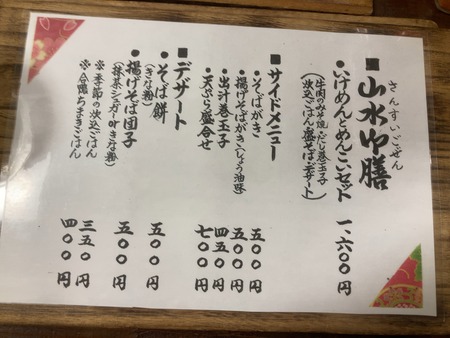 さんすいごぜん
■山水御膳
●いけめんとめんこいセット 一、六〇〇円
(牛肉のみそ焼・だし巻玉子
炊込ごはん・盛そば・デザート)
■サイドメニュー
●そばがき 五〇〇円
●揚げそばがき(しょう油味) 五〇〇円
●出汁巻玉子 四五〇円
●天ぷら盛合せ 七〇〇円
■デザート
●そば餅 五〇〇円
(きな粉)
●揚げそば団子 五〇〇円
(抹茶シュガーorきな粉)
※季節の炊込ごはん 三五〇円
※合鴨ちまきごはん 四〇〇円